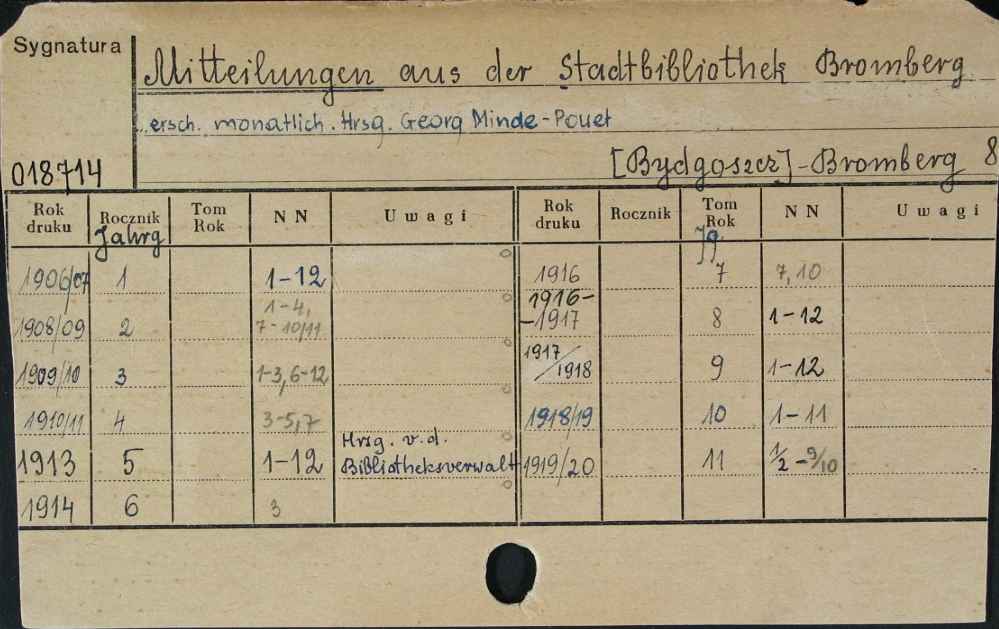 Sygnatura
Mitteilungen aus der Stadtbibliothek Bromberg
ersch. monatlich. Hrsg. Georg Minde-Pouet
018714
[Bydgoszcz]-Bromberg 8
Rok druku Rocznik Tom Rok NN Uwagi Rok druku Rocznik Tom Rok NN Uwagi
Jahrg Jg.
1906/07 1 1-12 1916 7 7,10
1908/09 2 1-4, 7-10/11 1916--1917 8 1-12
1909/10 3 1-3, 6-12 1917/1918 9 1-12
1910/11 4 3-5,7 1918/19 10 1-11
1913 5 1-12 Hrsg. v.d. Bibliotheksverwalt 1919/20 11 1/2-9/10
1914 6 3